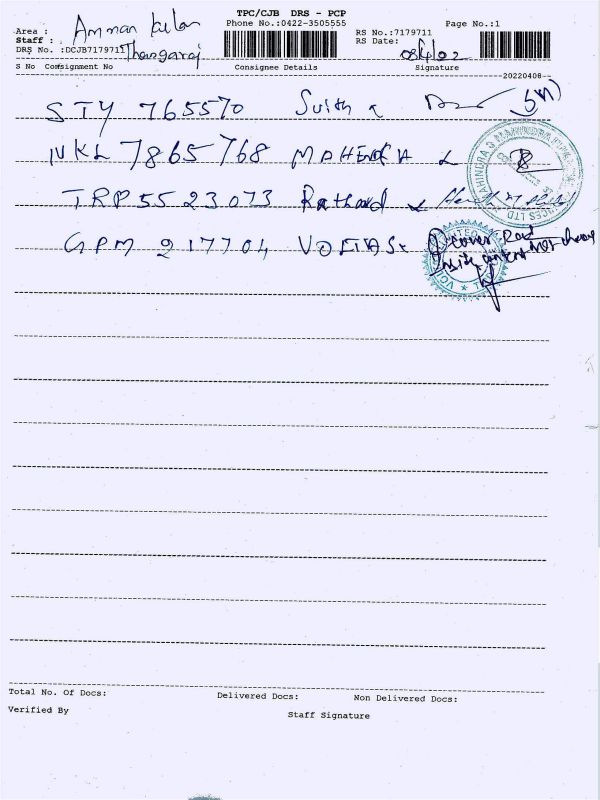 TPC/CJB DRS - PCP
Phone No.:0422-3505555
Page No.:1
Area : Amman Kulam
Staff : Thangaraj
DRS No. :DCJB7179711
RS No.:7179711
RS Date: 08/4/22
S No Consignment No Consignee Details Signature
20220408--
STY 765570
NKL 7865768 MAHENDRA
TRP 5523073 Rathand
GPM 217704 VOLTAS
cover Rcd
inside content not
Total No. Of Docs: Delivered Docs: Non Delivered Docs:
Verified By Staff Signature